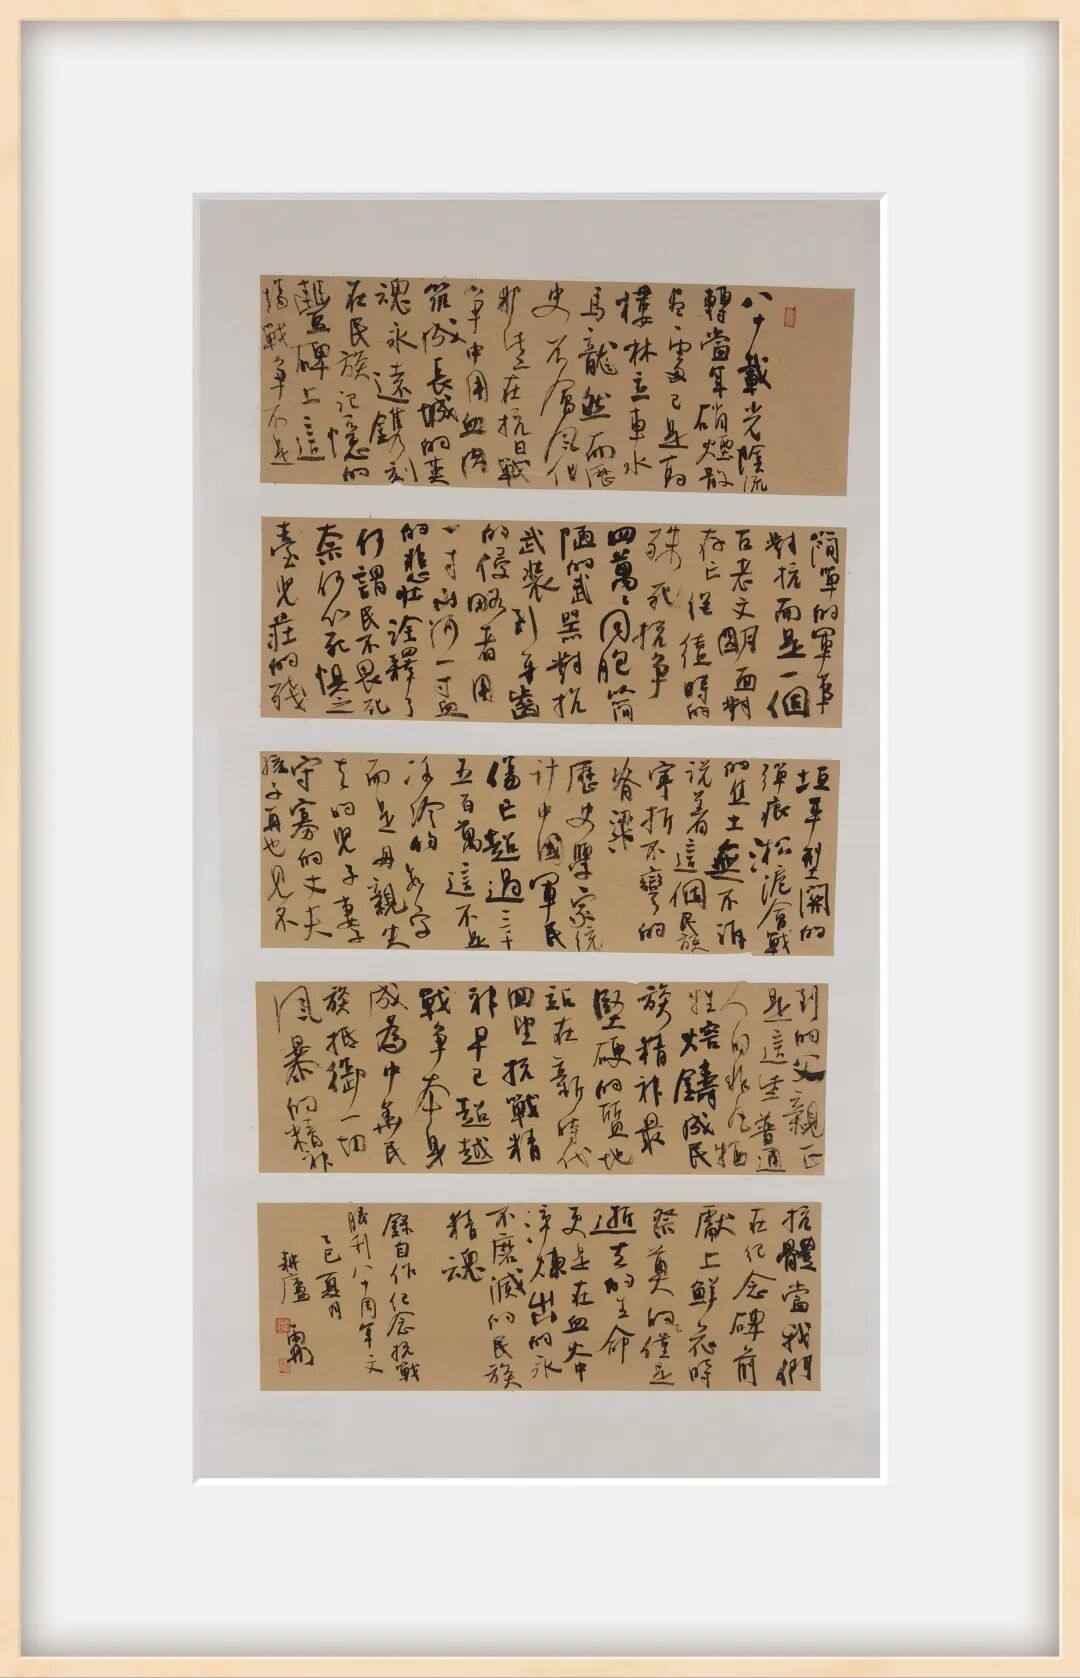 八十載光陰流
轉當年硝煙散
盡之處已是高
樓林立車水
馬龍然而歷
史不會忘但
那些在抗日戰
爭中用血肉
築成長城的英
魂永遠鐫刻
在民族記憶的
豐碑上這
場戰爭不是
簡單的軍事
對抗而是一個
古老文明面對
存亡絕續時的
殊死抗爭
四萬萬同胞簡
陋的武器對抗
武裝到牙齒
的侵略者用
一寸山河一寸血
的悲壯詮釋了
何謂民不畏死
奈何以死懼之
臺兒莊的殘
垣平型關的
彈痕淞滬會戰
的焦土無不訴
說着這個民族
寧折不彎的
脊梁
歷史學家統
計中國軍民
傷亡超過三千
五百萬這不是
冰冷的數字
而是母親失
去的兒子妻子
守寡的丈夫
孩子再也見不
到的父親正
是這些普通
人的非凡犧
牲熔鑄成民
族精神最
堅硬的質地
站在新時代
回望抗戰精
神早已超越
戰爭本身
成為中華民
族抵禦一切
風暴的精神
抗體當我們
在紀念碑前
獻上鮮花時
祭奠的不僅是
逝去的生命
更是在血火中
淬煉出的永
不磨滅的民族
精魂
錄自作紀念抗戰
勝利八十周年文
乙巳夏月
耕廬